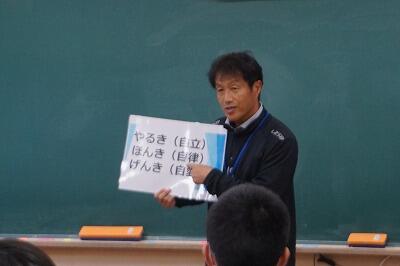 やるき（自立）
ほんき（自律）
げんき（自